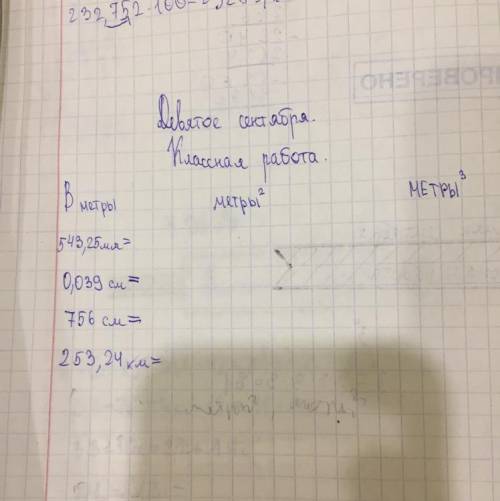 232,752·100=
ПРОВЕРЕНО
Девятое сентября.
Классная работа.
В метры метры² метры³
543,25мм=
0,039 см=
756 см=
253,24 км=